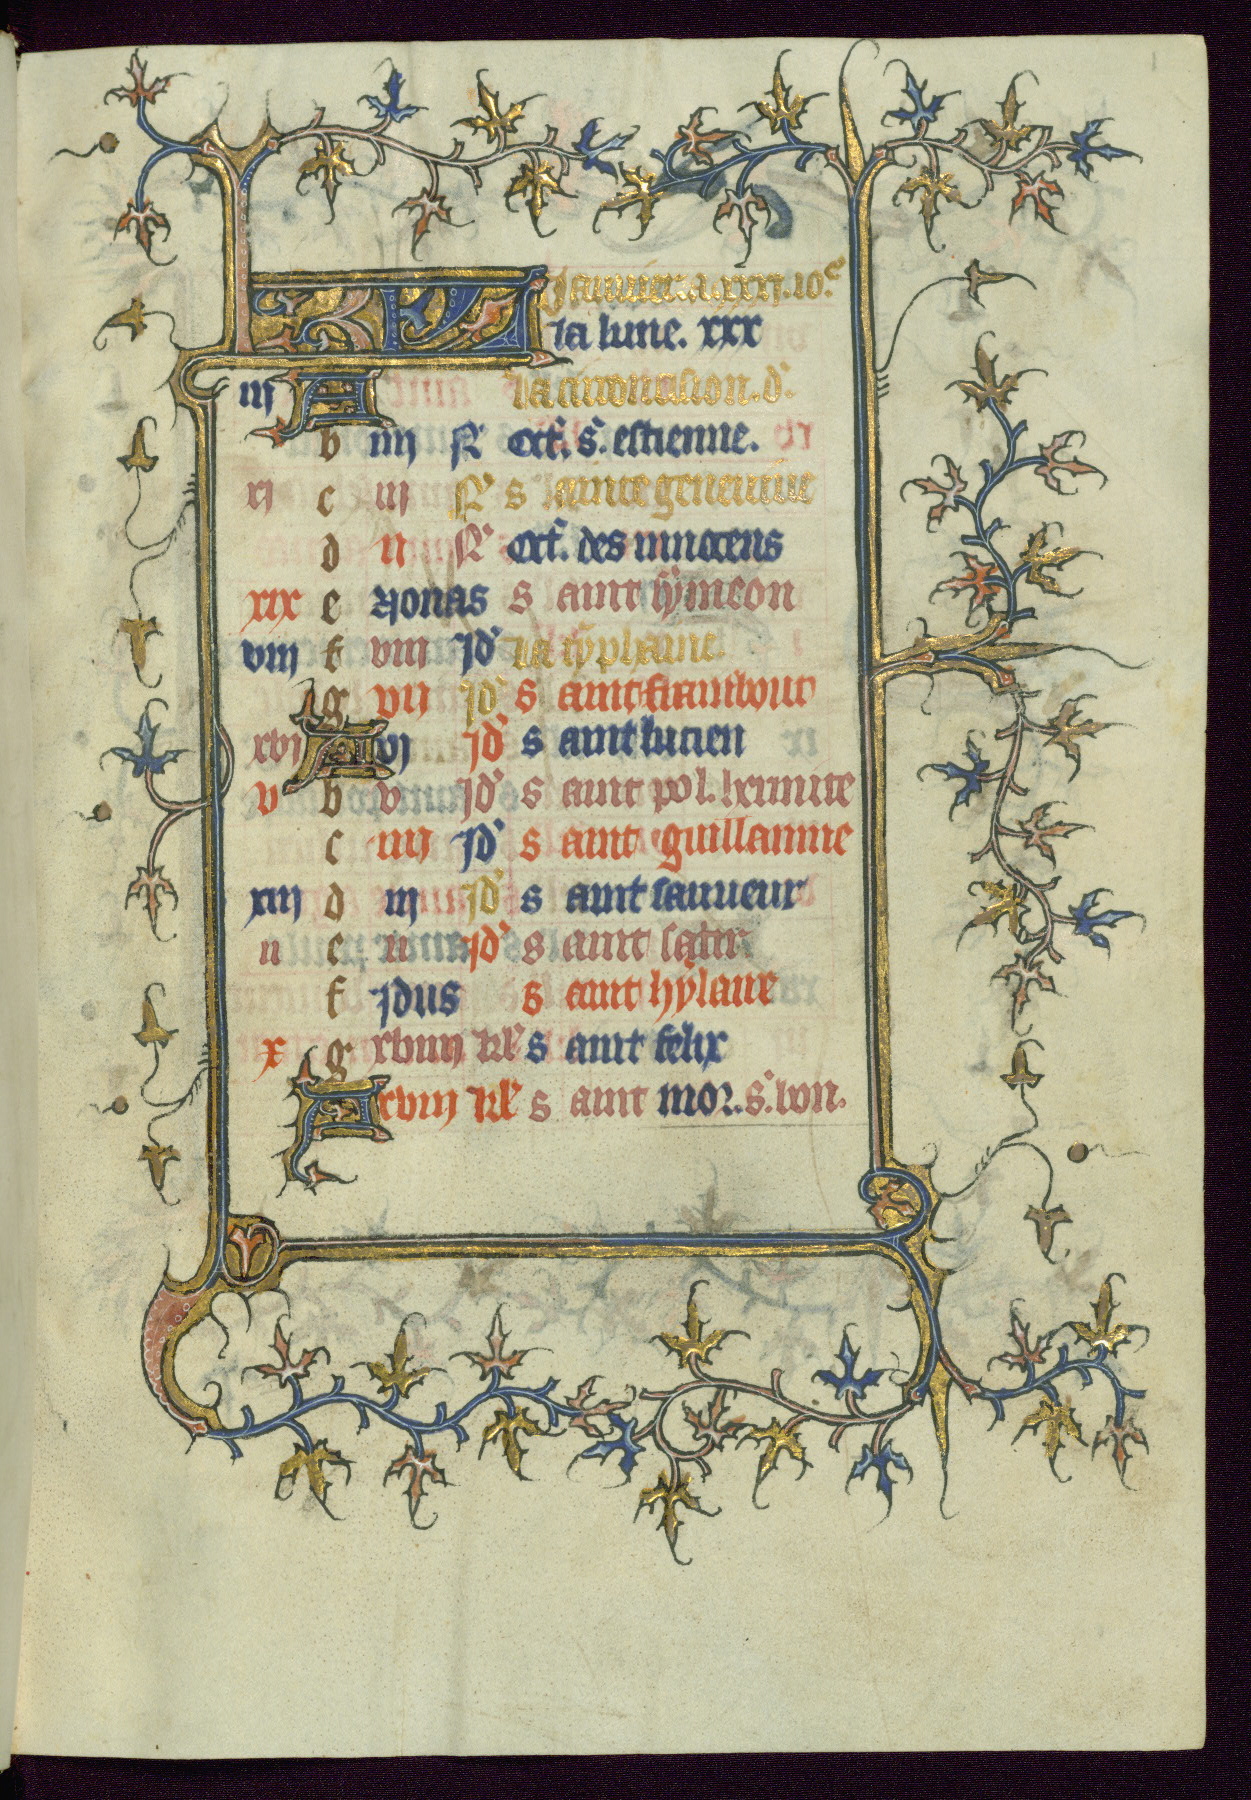 KL Januier. a. xxxj. io's
la lune. xxx
iij A la circoncision. d'.
b iiij N' oct'. s'. estienne.
xj c iij N' s ainte geneuiue
d ii N' oct'. des innocens
xix e Nonas s aint symeon
viij f viij jd' la typhaine.
g vij jd' s aint frambout
xvj A vj jd' s aint lucien
v b v jd' s aint pol. lermite
c iiij jd' s aint guillaume
xiij d iij jd' s aint sauueur
ii e ii jd' s aint satir
f jdus s aint hylaire
x g xviiij kl' s aint felix
A xviij kl' s aint mor. s'. bon.